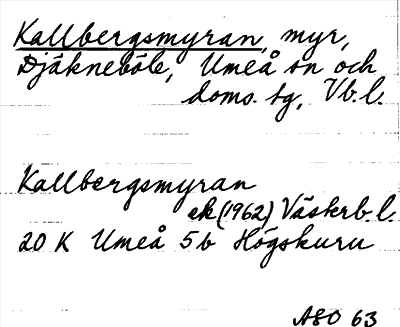 Kallbergsmyran, myr,
Djäkneböle, Umeå sn och
doms. sg, Vb.l.
Kallbergsmyran
ek (1962) Västerb.l.
20 K Umeå 5b Högskuru
ASO 63